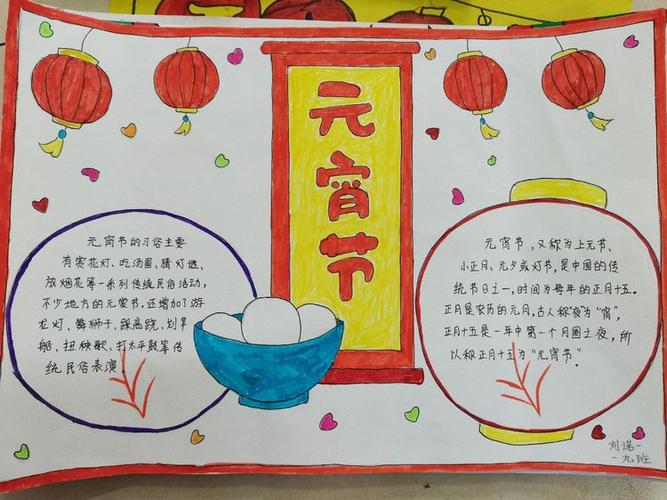 元宵节
元宵节的习俗主要
有赏花灯、吃汤圆、猜灯谜、
放烟花等一系列传统民俗活动,
不少地方的元宵节,还增加了游
龙灯、舞狮子、踩高跷、划旱
船、扭秧歌、打太平鼓等传
统民俗表演
元宵节,又称为上元节、
小正月、元夕或灯节,是中国的传
统节日之一,时间为每年的正月十五。
正月是农历的元月,古人称“夜”为“宵”,
正月十五是一年中第一个月圆之夜,所
以称正月十五为“元宵节”。
刘诺一
一九班